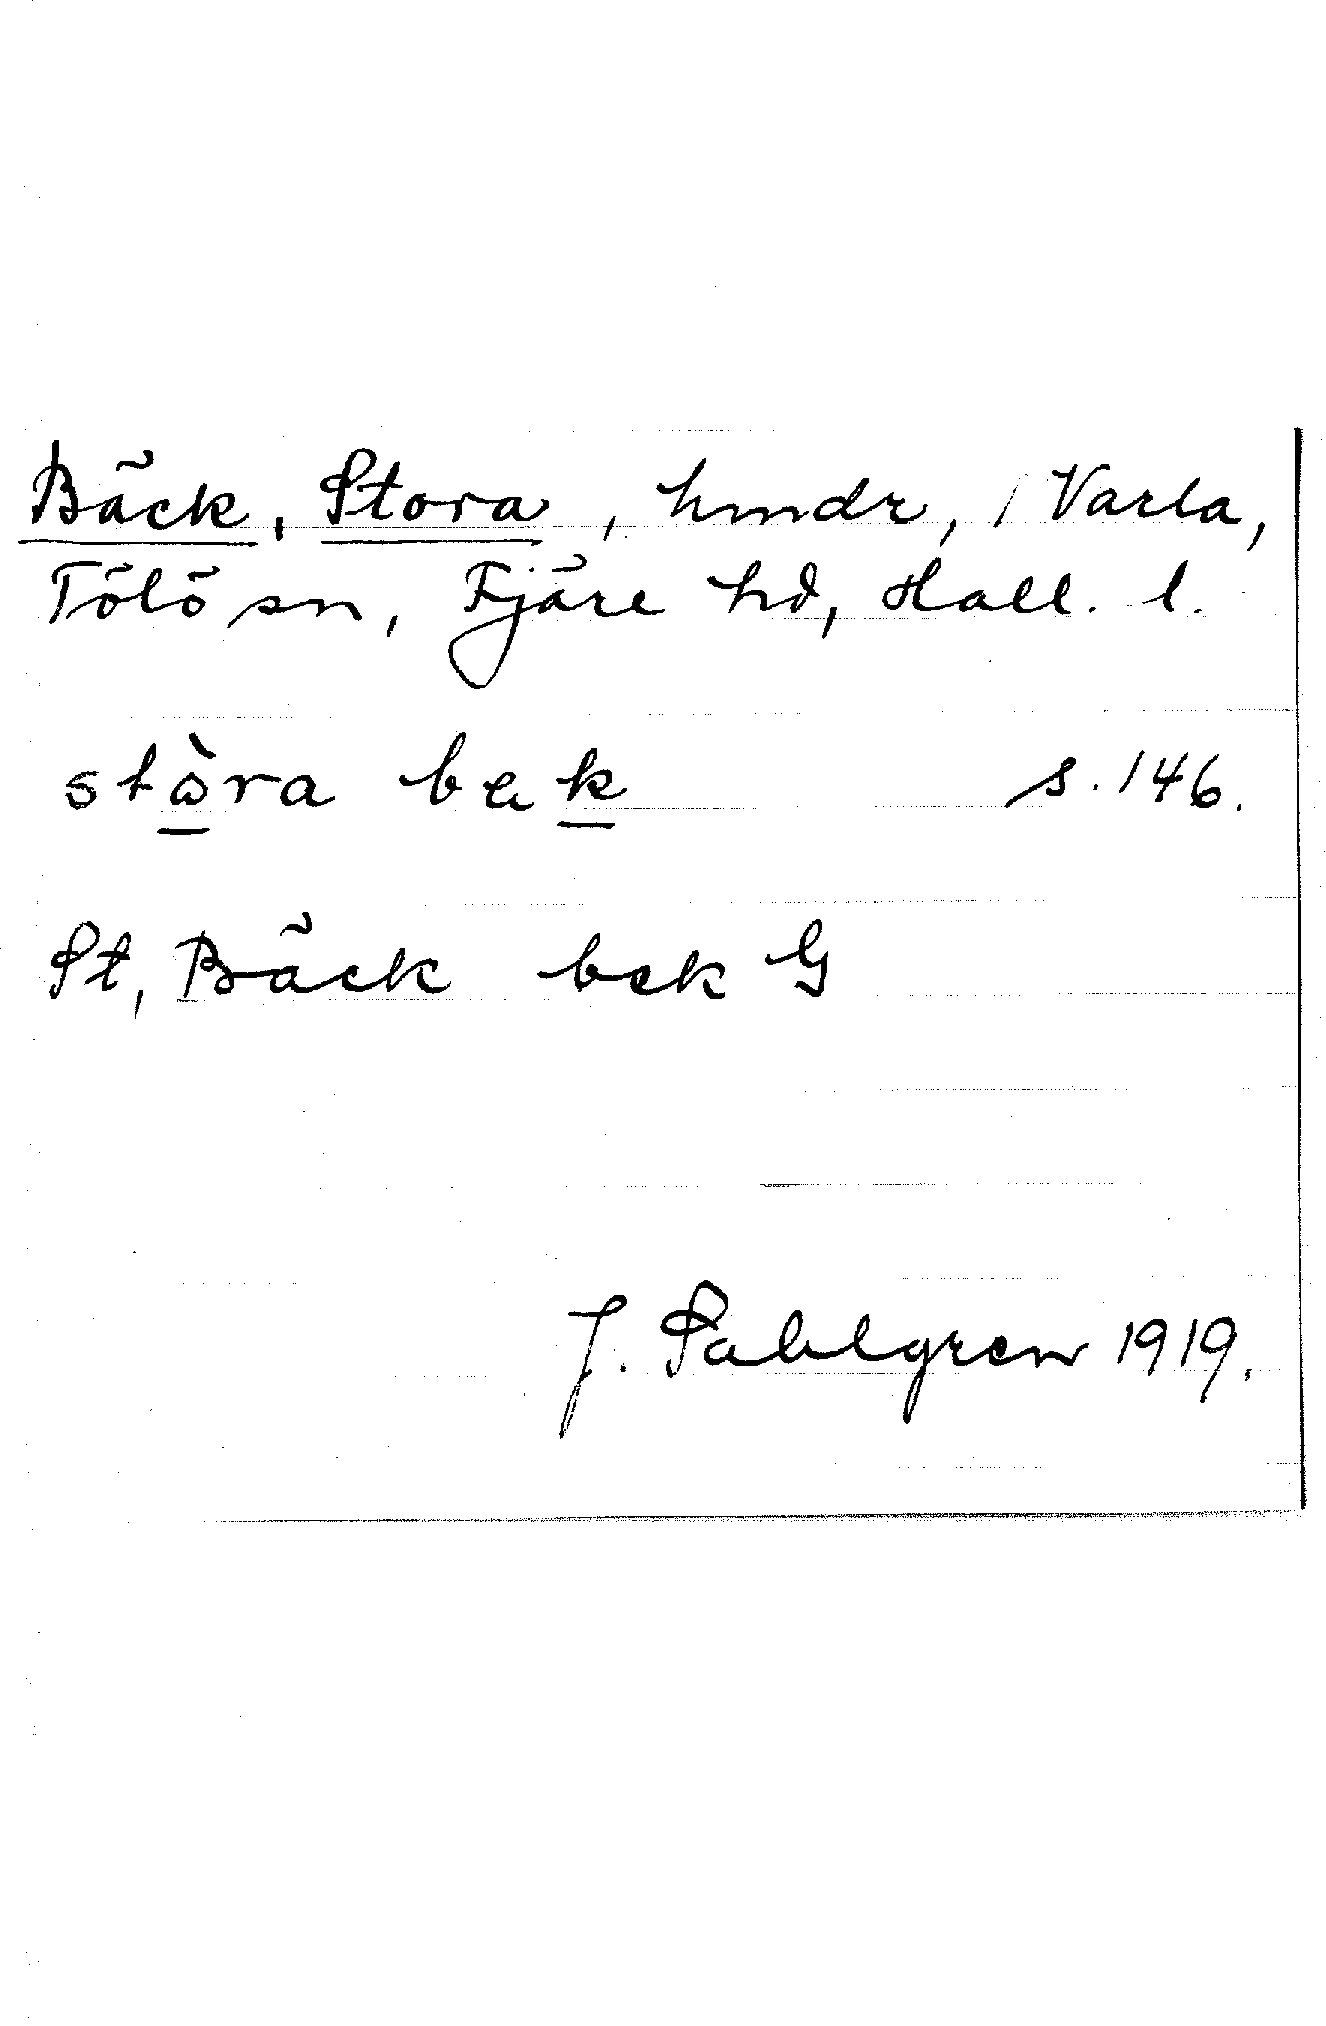 Bäck, Stora, hmdr, / Varla,
Tölö sn, Fjäre hd, Hall. l.
stòra bek s. 146.
St, Bäck bek G
J. Sahlgren 1919.